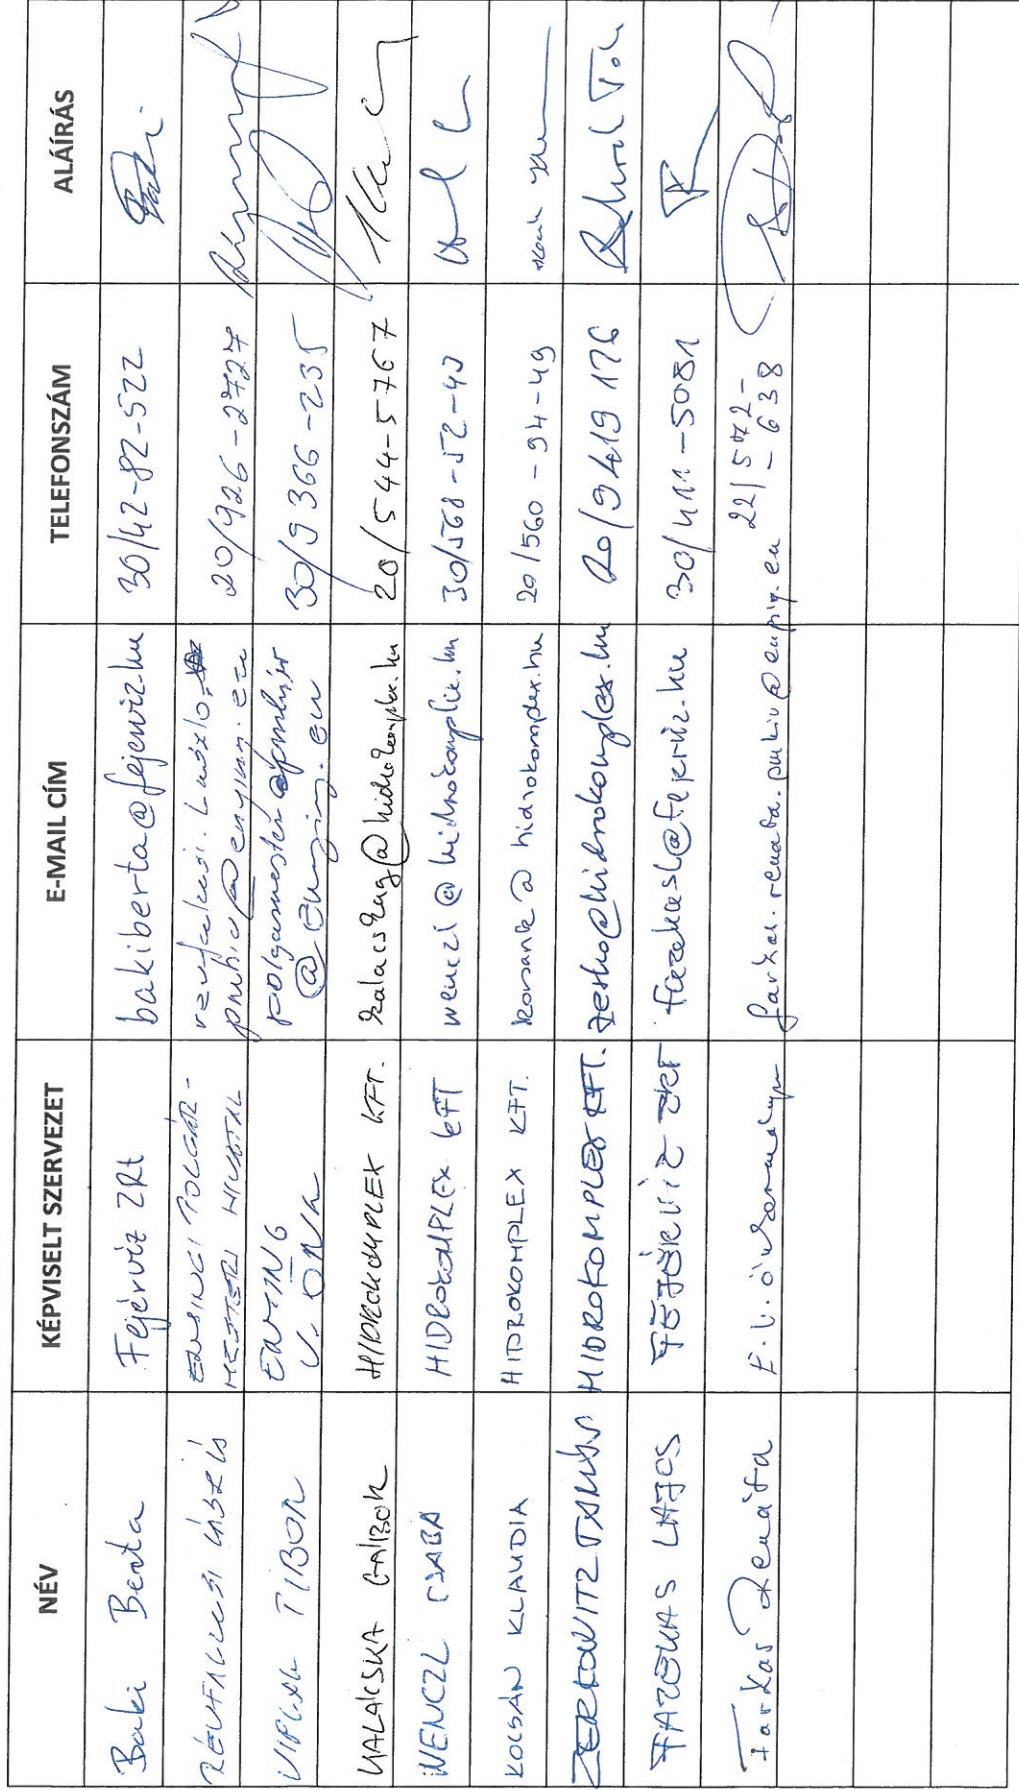 NÉV KÉPVISELT SZERVEZET E-MAIL CÍM TELEFONSZÁM ALÁÍRÁS
Baki Berta Fejérvíz ZRt bakiberta@fejerviz.hu 30/42-82-522
RÉVFALUSI LÁSZLÓ ENYINGI POLGÁR-
MESTERI HIVATAL revfalusi.laszlo.
pmhiv@enying.eu 20/926-2727
VIPLAK TIBOR ENYING
V. ÖNK polgarmester.pmhiv
@enying.eu 30/9366-235
KALAICSKA GÁBOR HIDROKOMPLEX KFT. kalaicskag@hidrokomplex.hu 20/544-5767
WENCZL CSABA HIDROKOMPLEX KFT wenczl@hidrokomplex.hu 30/568-52-40
KOCSÁN KLAUDIA HIDROKOMPLEX KFT. kocsank@hidrokomplex.hu 20/560-94-49
ZERKOWITZ TAMÁS HIDROKOMPLEX KFT. zerko@hidrokomplex.hu 20/9419 176
FAZEKAS LAJOS FEJÉRVÍZ ZRT fazekasl@fejerviz.hu 30/411-5081
Farkas Renáta E.V.Önkormányz farkas.renata.pmhiv@enying.eu 22/572-
-638